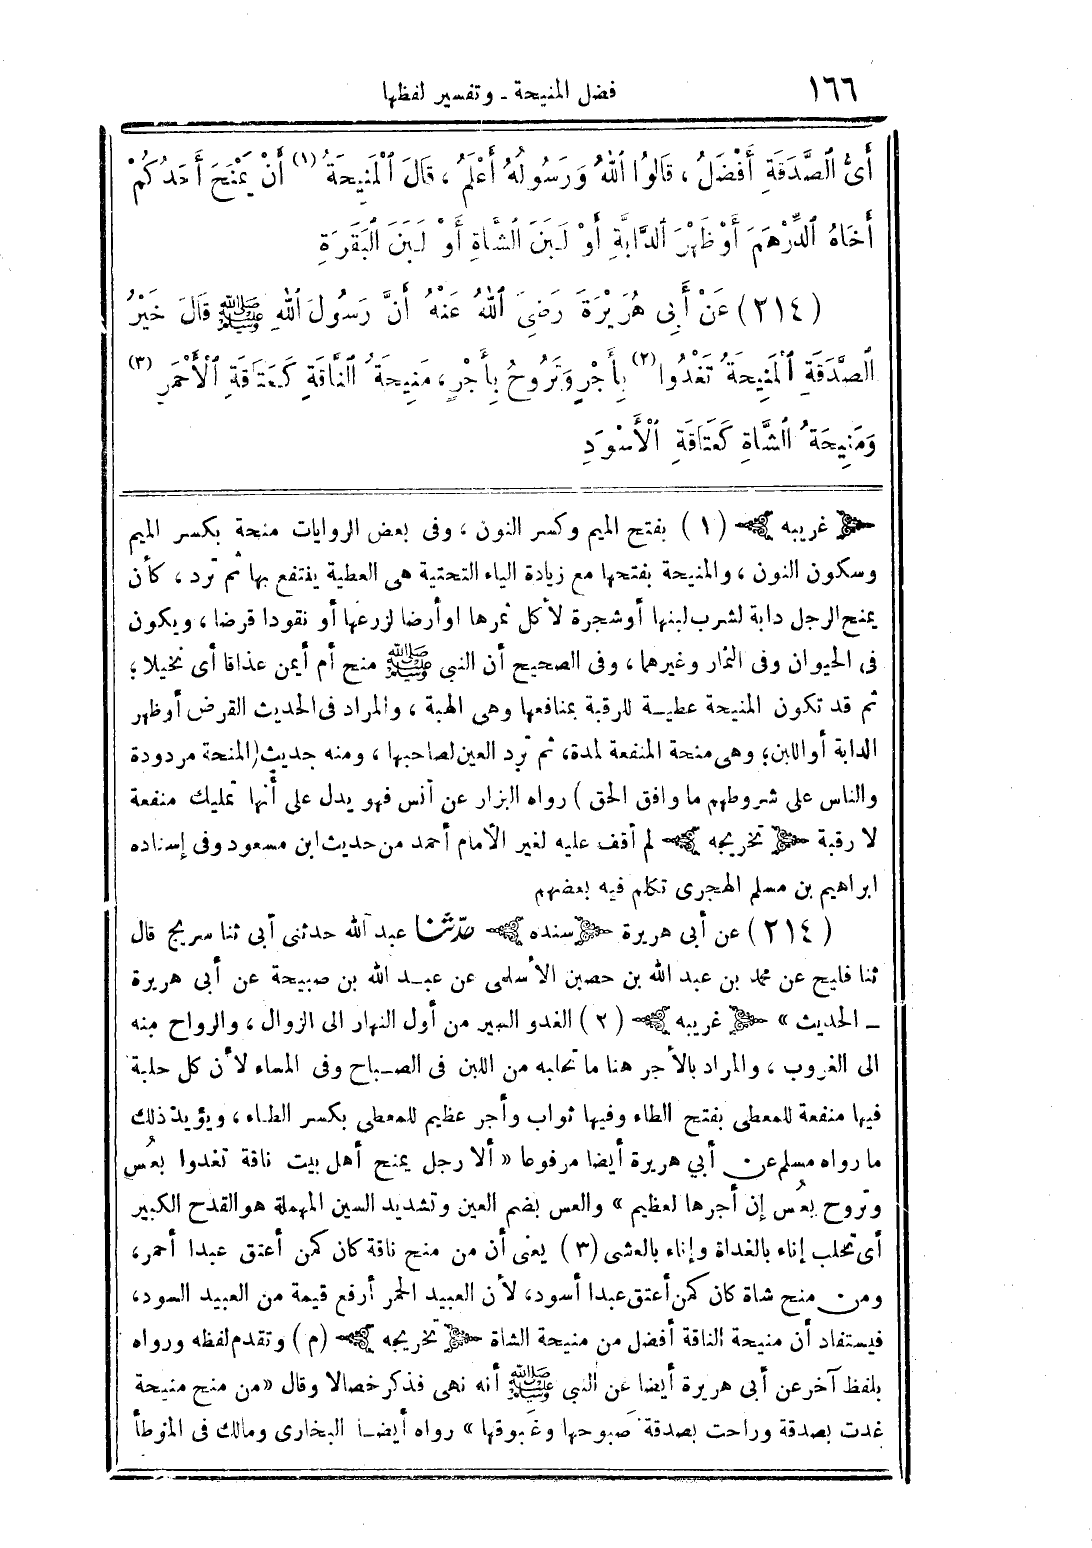 ١٦٦ فضل المنيحة - وتفسير لفظها
أَىُّ الصَّدَقَةِ أَفْضَلُ ، قَالُوا اللهُ وَرَسُولُهُ أَعْلَمُ ، قَالَ الْمَنِيحَةُ (١) أَنْ يَمْنَحَ أَحَدُكُمْ
أَخَاهُ الدِّرْهَمَ أَوْ ظَهْرَ الدَّابَّةِ أَوْ لَبَنَ الشَّاةِ أَوْ لَبَنَ الْبَقَرَةِ
(٢١٤) عَنْ أَبِى هُرَيْرَةَ رَضِىَ اللهُ عَنْهُ أَنَّ رَسُولَ اللهِ ﷺ قَالَ خَيْرُ
الصَّدَقَةِ الْمَنِيحَةُ تَغْدُوا (٢) بِأَجْرٍ وَتَرُوحُ بِأَجْرٍ ، مَنِيحَةُ النَّاقَةِ كَعَتَاقَةِ الْأَحْمَرِ (٣)
وَمَنِيحَةُ الشَّاةِ كَعَتَاقَةِ الْأَسْوَدِ
﴿ غريبه ﴾ (١) بفتح الميم وكسر النون ، وفى بعض الروايات منحة بكسر الميم
وسكون النون ، والمنيحة بفتحها مع زيادة الياء التحتية هى العطية ينتفع بها ثم ترد ، كأن
يمنح الرجل دابة لشرب لبنها أو شجرة لأكل ثمرها اوأرضا لزرعها أو نقودا قرضا ، ويكون
فى الحيوان وفى الثمار وغيرهما ، وفى الصحيح أن النبى ﷺ منح أم أيمن عذاقا أى نخيلا ؛
ثم قد تكون المنيحة عطيـة للرقبة بمنافعها وهى الهبة ، والمراد فى الحديث القرض أوظهر
الدابة أو اللبن ؛ وهى منحة المنفعة لمدة، ثم ترد العين لصاحبها ، ومنه حديث (المنحة مردودة
والناس على شروطهم ما وافق الحق ) رواه البزار عن أنس فهو يدل على أنها تمليك منفعة
لا رقبة ﴿ تخريجه ﴾ لم أقف عليه لغير الأمام أحمد من حديث ابن مسعود وفى إسناده
ابراهيم بن مسلم الهجرى تكلم فيه بعضهم
(٢١٤) عن أبى هريرة ﴿ سنده ﴾ حدّثنا عبد الله حدثنى أبى ثنا سريج قال
ثنا فليح عن محمد بن عبد الله بن حصين الأسلمى عن عبـد الله بن صبيحة عن أبى هريرة
ـ الحديث » ﴿ غريبه ﴾ (٢) الغدو السير من أول النهار الى الزوال ، والرواح منه
الى الغروب ، والمراد بالأجر هنا ما تحلبه من اللبن فى الصـباح وفى المساء لأن كل حلبة
فيها منفعة للمعطى بفتح الطاء وفيها ثواب وأجر عظيم للمعطى بكسر الطـاء ، ويؤيد ذلك
ما رواه مسلم عن أبي هريرة أيضا مرفوعا « ألا رجل يمنح أهل بيت ناقة تغدوا بعُس
وتروح بعُس إن أجرها لعظيم » والعس بضم العين وتشديد السين المهملة هو القدح الكبير
أى تحلب إناء بالغداة وإناء بالعشى (٣) يعنى أن من منح ناقة كان كمن أعتق عبدا أحمر،
ومن منح شاة كان كمن أعتق عبدا أسود، لأن العبيد الحمر أرفع قيمة من العبيد السود،
فيستفاد أن منيحة الناقة أفضل من منيحة الشاة ﴿ تخريجه ﴾ (م) وتقدم لفظه ورواه
بلفظ آخر عن أبى هريرة أيضا عن النبى ﷺ أنه نهى فذكر خصالا وقال «من منح منيحة
غدت بصدقة وراحت بصدقة صبوحها وغبوقها » رواه أيضـا البخارى ومالك فى الموطأ